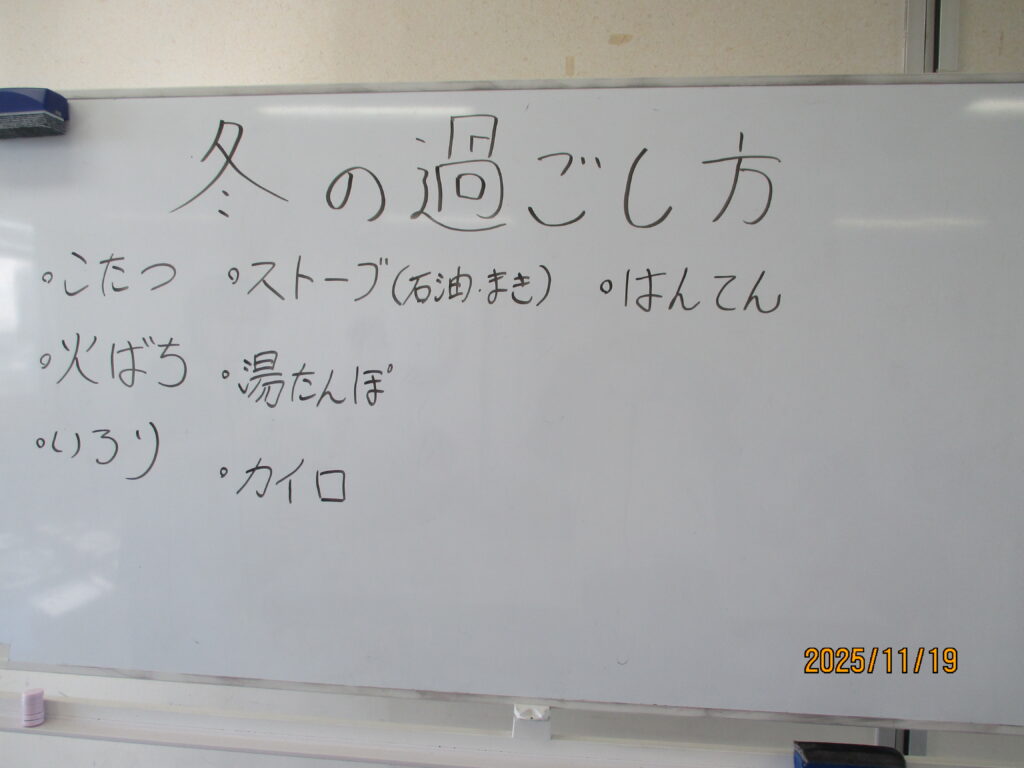 冬の過ごし方
・こたつ ・ストーブ(石油・まき) ・はんてん
・火ばち ・湯たんぽ
・いろり ・カイロ
2025/11/19